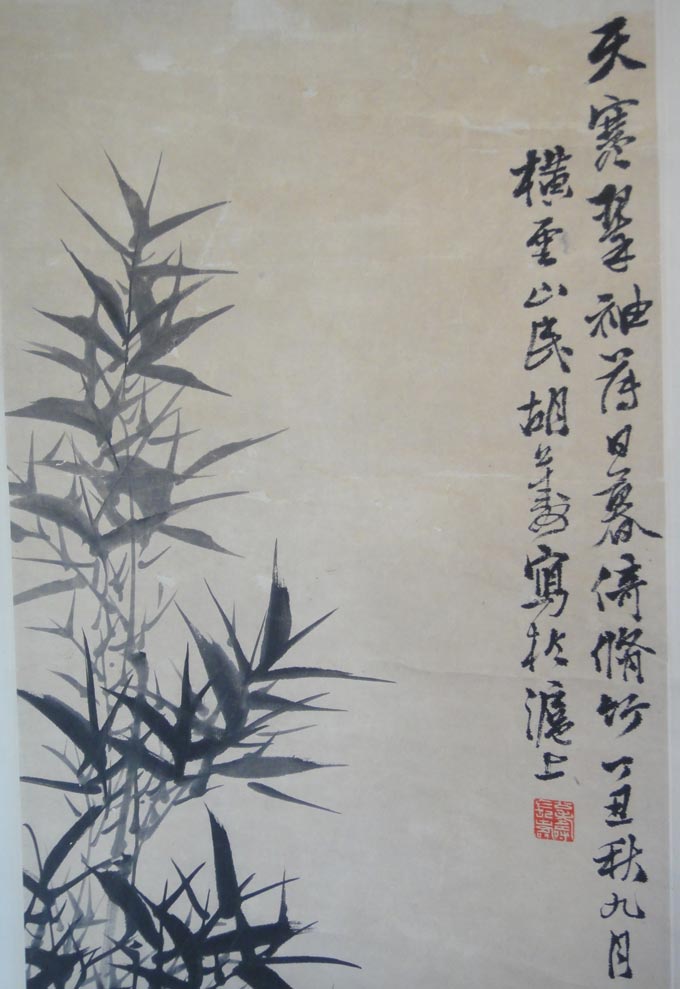 天寒翠袖薄日暮倚脩竹丁丑秋九月
橫雲山民胡公壽寫於滬上